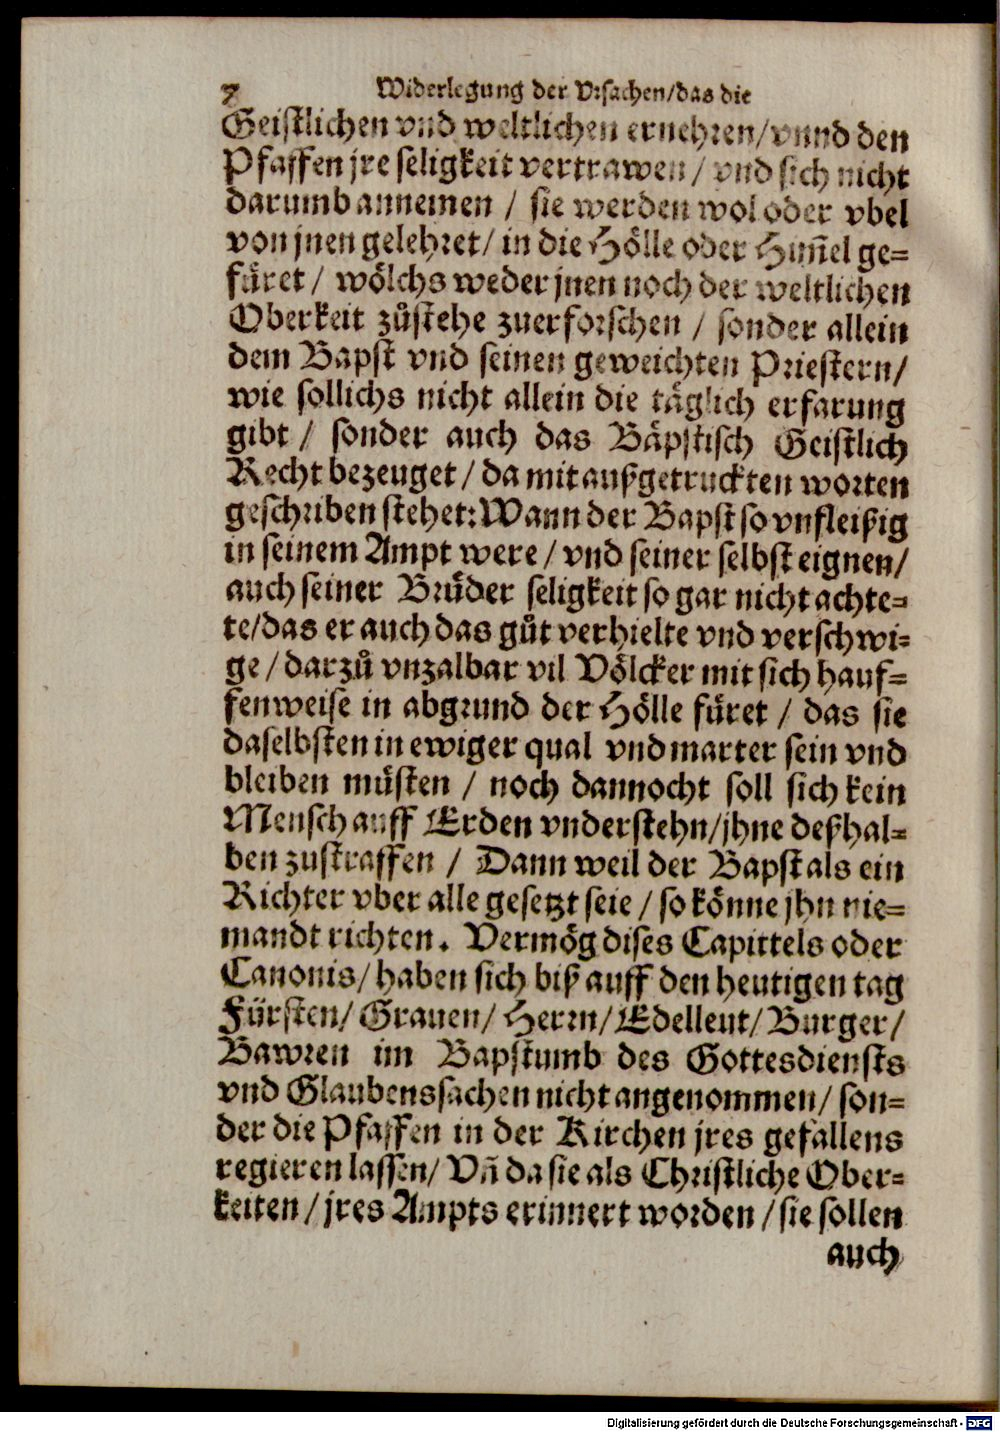 7 Widerlegung der Vrsachen/das die
Geistlichen vnd weltlichen ernehren/vnnd den
Pfaffen jre seligkeit vertrawen / vnd sich nicht
darumb annemen / sie werden wol oder vbel
von jnen gelehret/ in die Hölle oder Him̃el ge=
füret / wölchs weder jnen noch der weltlichen
Oberkeit zůstehe zuerforschen / sonder allein
dem Bapst vnd seinen geweichten Priestern/
wie sollichs nicht allein die täglich erfarung
gibt / sonder auch das Bäpstisch Geistlich
Recht bezeuget / da mit außgetruckten worten
geschriben stehet: Wann der Bapst so vnfleißig
in seinem Ampt were / vnd seiner selbst eignen/
auch seiner Brüder seligkeit so gar nicht achte=
te/das er auch das gůt verhielte vnd verschwi=
ge / darzů vnzalbar vil Völcker mit sich hauf=
fenweise in abgrund der Hölle füret / das sie
daselbsten in ewiger qual vnd marter sein vnd
bleiben müsten / noch dannocht soll sich kein
Mensch auff Erden vnderstehn/jhne deßhal=
ben zustraffen / Dann weil der Bapst als ein
Richter vber alle gesetzt seie / so könne jhn nie=
mandt richten. Vermög dises Capittels oder
Canonis/ haben sich biß auff den heutigen tag
Fürsten/ Grauen/ Herrn/ Edelleut/ Burger/
Bawren im Bapstumb des Gottesdiensts
vnd Glaubenssachen nicht angenommen/ son=
der die Pfaffen in der Kirchen jres gefallens
regieren lassen/ Vñ da sie als Christliche Ober=
keiten / jres Ampts erinnert worden / sie sollen
auch
Digitalisierung gefördert durch die Deutsche Forschungsgemeinschaft - DFG